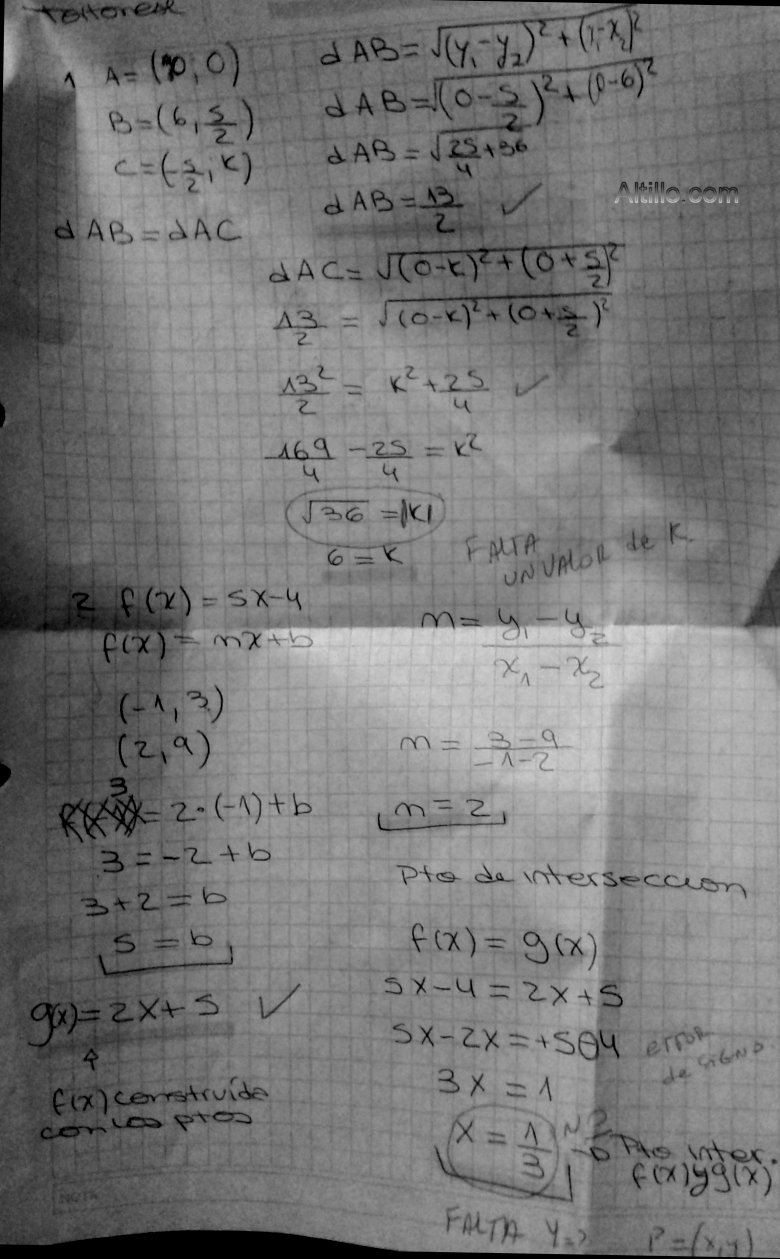 1 A = (0; 0)
B = (6, 5/2)
C = (-5/2, K)
d AB = dAC
d AB = √((y₁-y₂)² + (x₁-x₂)²)
d AB = √((0-5/2)² + (0-6)²)
d AB = √(25/4 + 36)
d AB = 13/2 ✓
Altillo.com
dAC = √((0-K)² + (0+5/2)²)
13/2 = √((0-K)² + (0+5/2)²)
13²/2 = K² + 25/4 ✓
169/4 - 25/4 = K²
√36 = |K|
6 = K
FALTA
UN VALOR de K.
2 f(x) = 5x-4
f(x) = mx+b
(-1, 3)
(2, 9)
3 = 2·(-1)+b
3 = -2+b
3+2 = b
5 = b
g(x) = 2x+5 ✓
f(x) construída
con los ptos
m = (y₁-y₂)/(x₁-x₂)
m = (3-9)/(-1-2)
m = 2
Pto de interseccion
f(x) = g(x)
5x-4 = 2x+5
5x-2x = +5⊖4
error
de SIGNO
3x = 1
x = 1/3
Pto inter.
f(x) y g(x)
FALTA Y=?
P = (x,y)